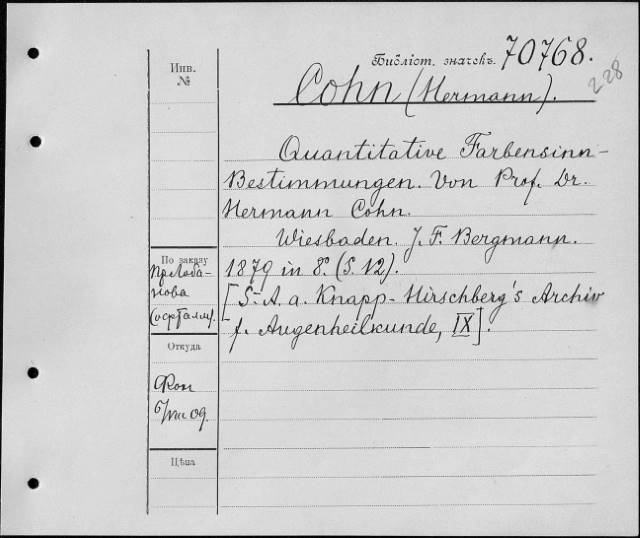 Инв.
№
Библіот. значекъ. 70768.
228
Cohn (Hermann).
Quantitative Farbensinn-
Bestimmungen. Von Prof. Dr.
Hermann Cohn.
Wiesbaden. J. F. Bergmann.
1879 in 8º. (S. 12).
[S.-A. a. Knapp-Hirschberg's Archiv
f. Augenheilkunde, IX].
По заказу
Пр. Лоба-
нова
Откуда
Фон
6/VIII 09.
Цѣна